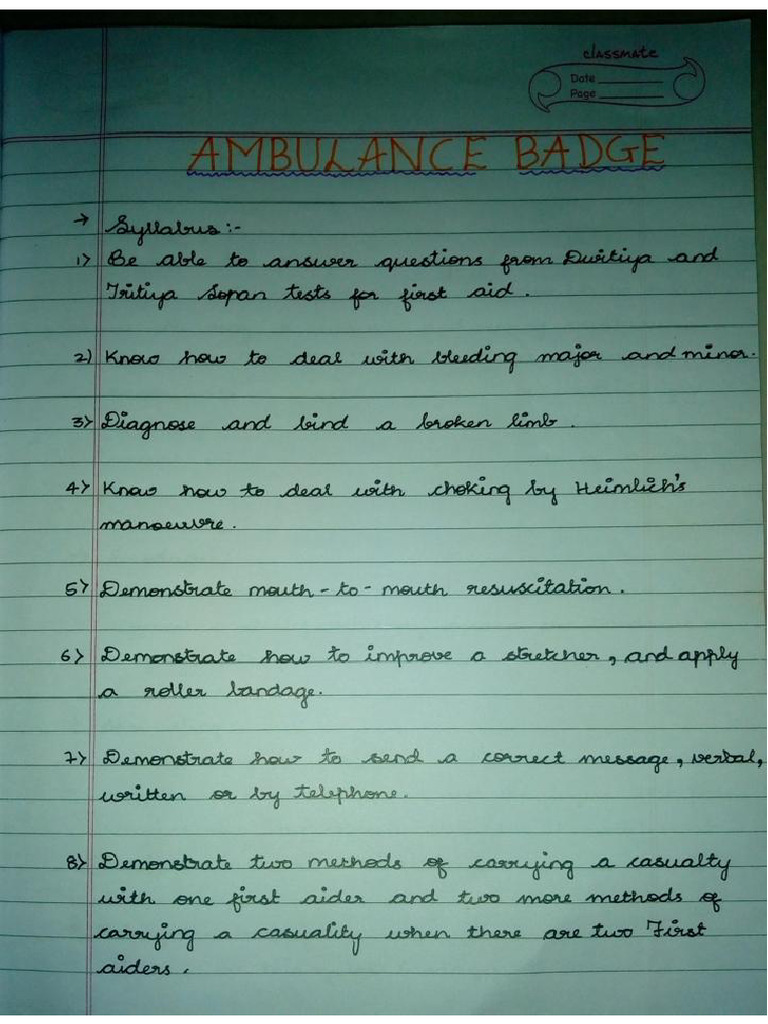 classmate
Date
Page
AMBULANCE BADGE
→ Syllabus :-
1) Be able to answer questions from Dwitiya and
Tritiya Sopan tests for first aid.
2) Know how to deal with bleeding major and minor.
3) Diagnose and bind a broken limb.
4) Know how to deal with choking by Heimlich's
manoeuvre.
5) Demonstrate mouth-to-mouth resuscitation.
6) Demonstrate how to improve a stretcher, and apply
a roller bandage.
7) Demonstrate how to send a correct message, verbal,
written or by telephone.
8) Demonstrate two methods of carrying a casualty
with one first aider and two more methods of
carrying a casuality when there are two First
aiders.